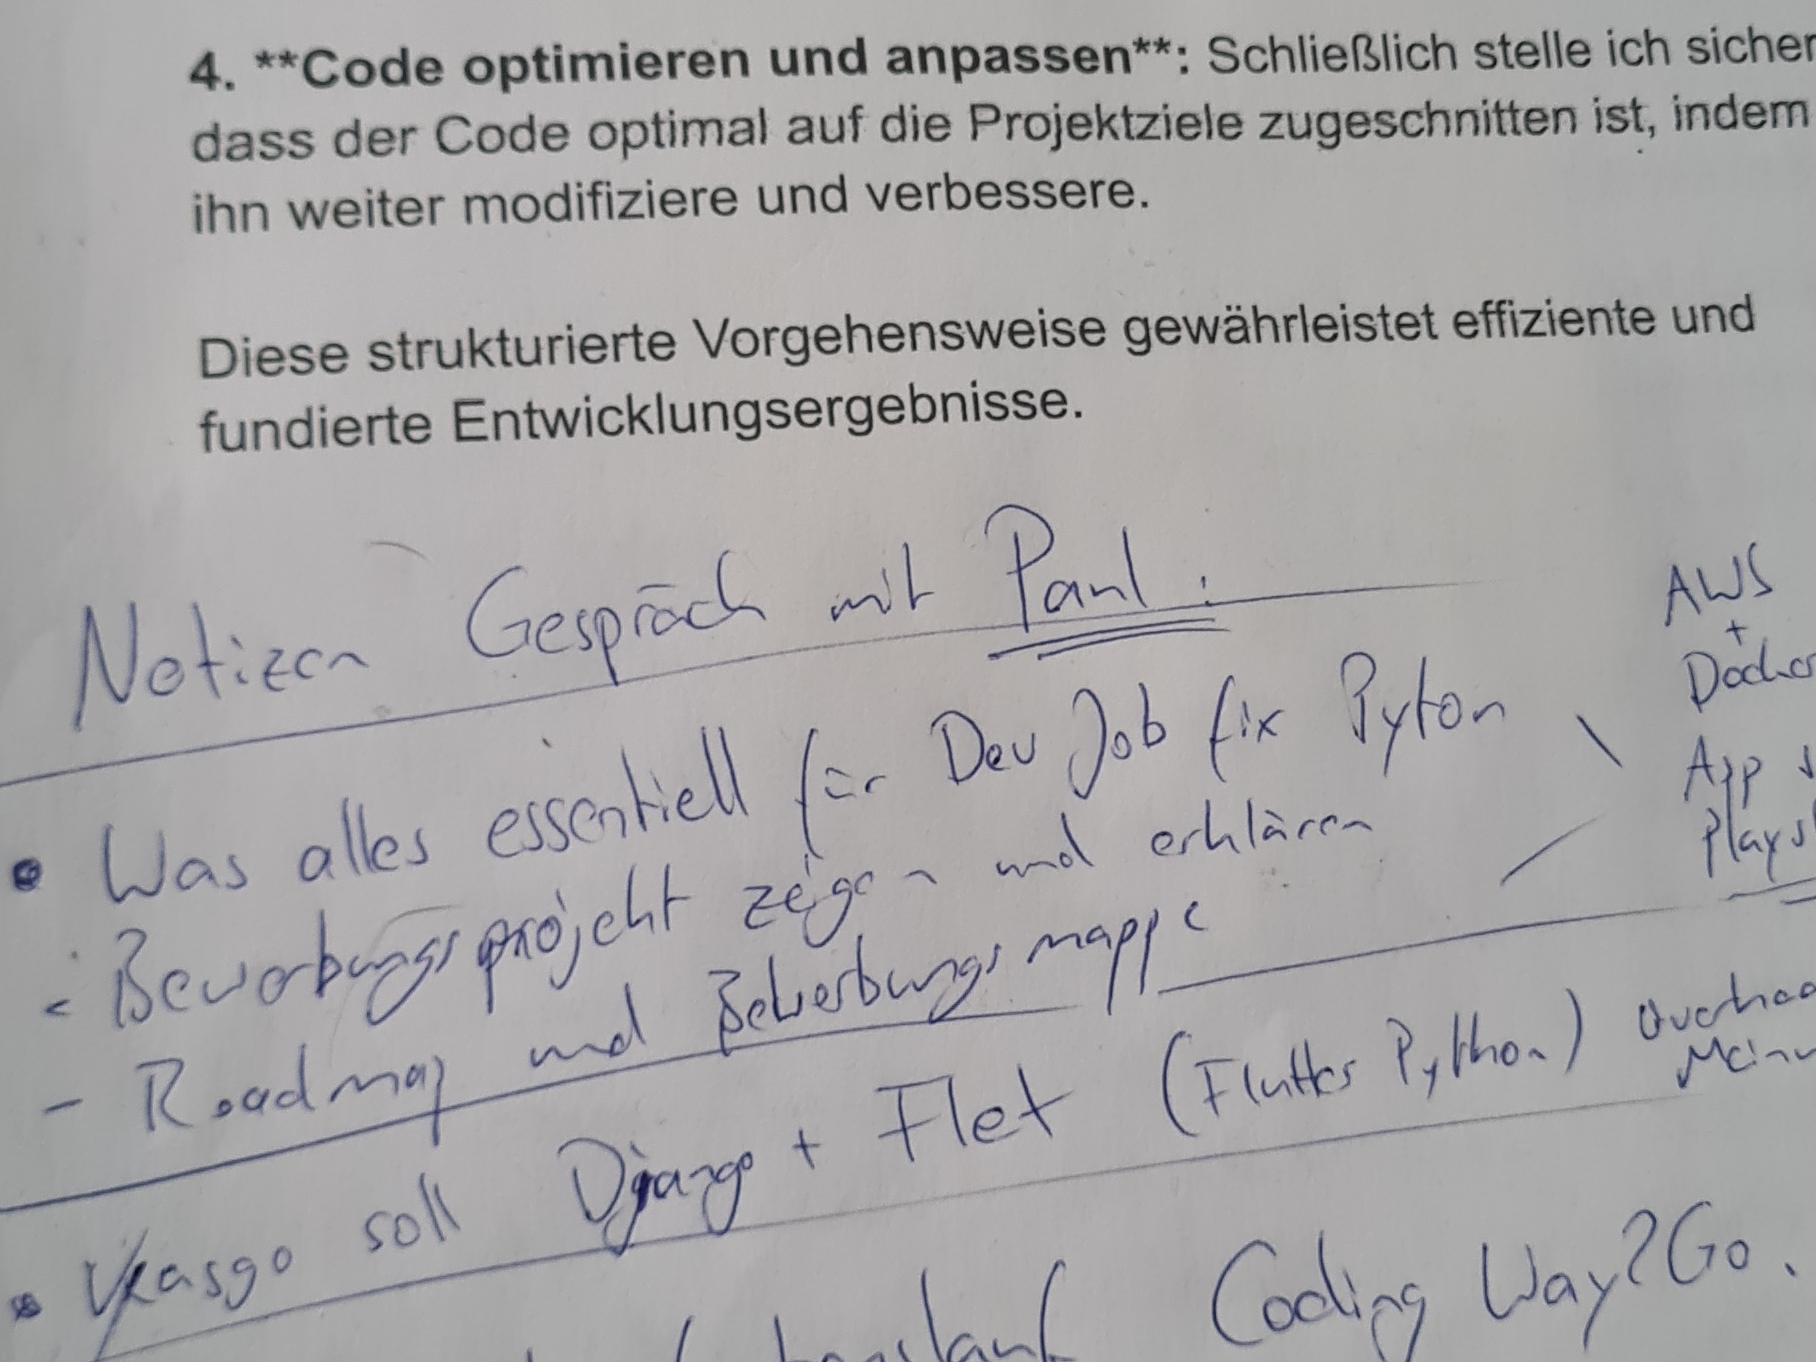 4. **Code optimieren und anpassen**: Schließlich stelle ich sicher
dass der Code optimal auf die Projektziele zugeschnitten ist, indem
ihn weiter modifiziere und verbessere.
Diese strukturierte Vorgehensweise gewährleistet effiziente und
fundierte Entwicklungsergebnisse.
Notizen Gespräch mit Paul:
AWS
+
Docker
• Was alles essentiell für Dev Job fix Pyton
App
Plays
- Bewerbungsprojekt zeigen und erklären
- Roadmap und Bewerbungsmappe
• soll Django + Flet (Flutter Python)
Coding Way? Go.